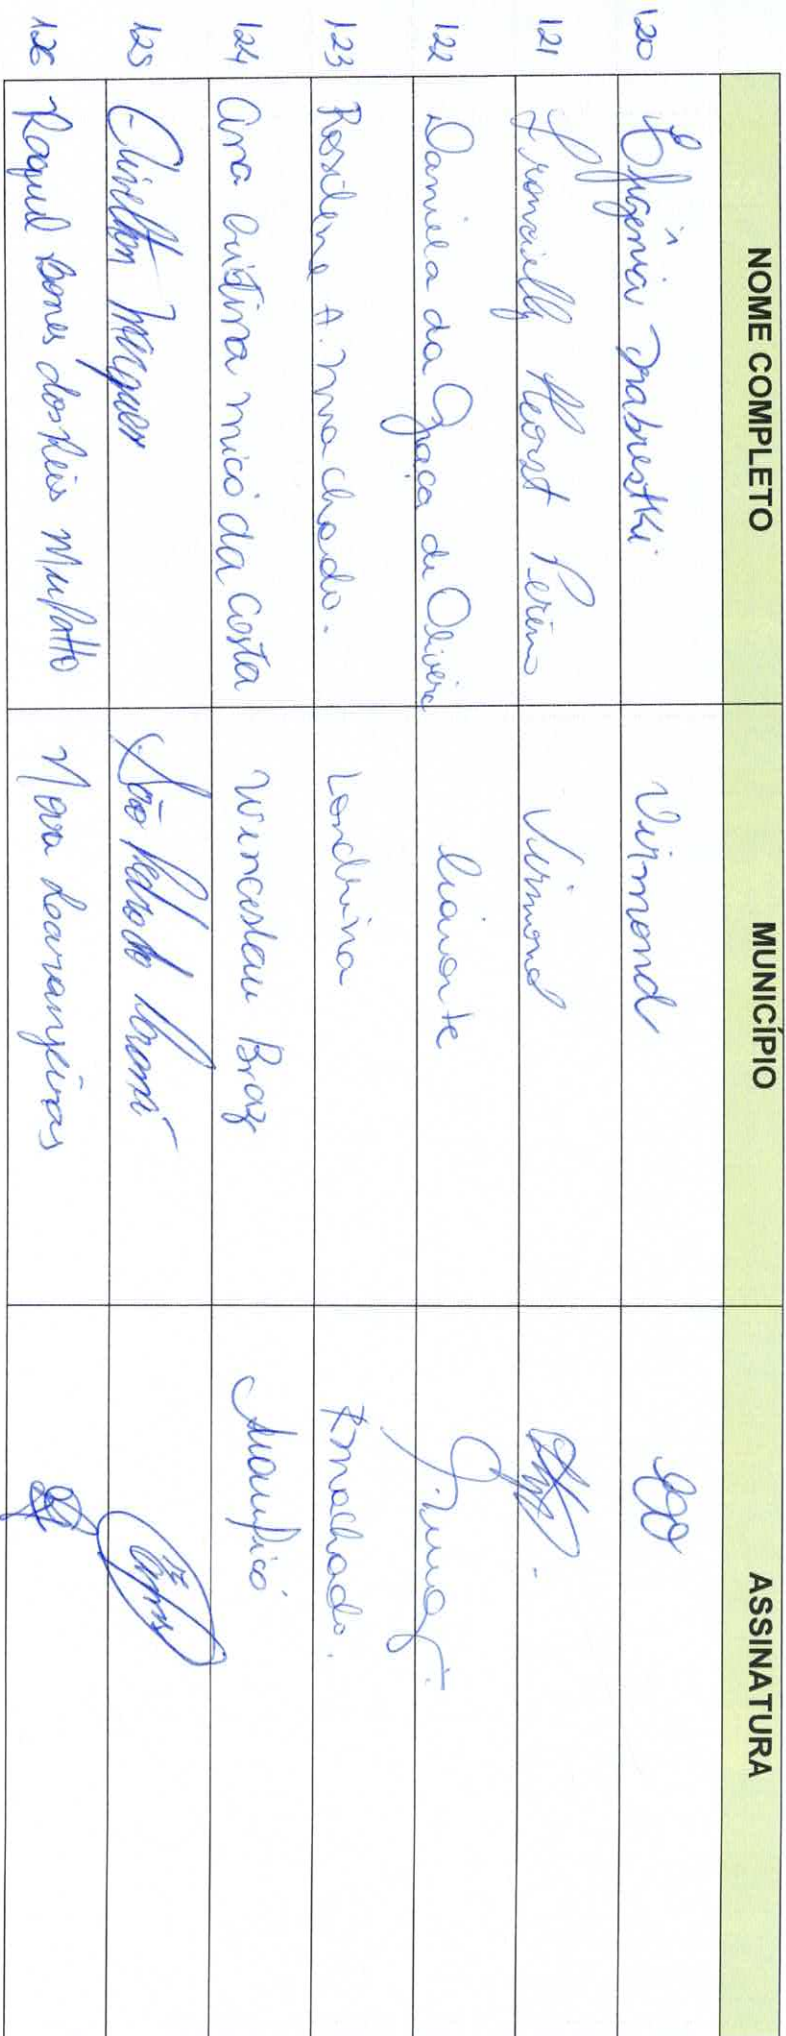 NOME COMPLETO MUNICÍPIO ASSINATURA
120 Efigênia Drabrestki Virmond
121 Francielly Horst Perin Virmond
122 Daniela da Graça de Oliveira Cianorte
123 Rosilene A. Machado. Londrina RMachado.
124 Ana Cristina Micó da Costa Wenceslau Braz
125 São Pedro do Paraná
126 Raquel Bones dos Reis Muffatto Nova Laranjeiras